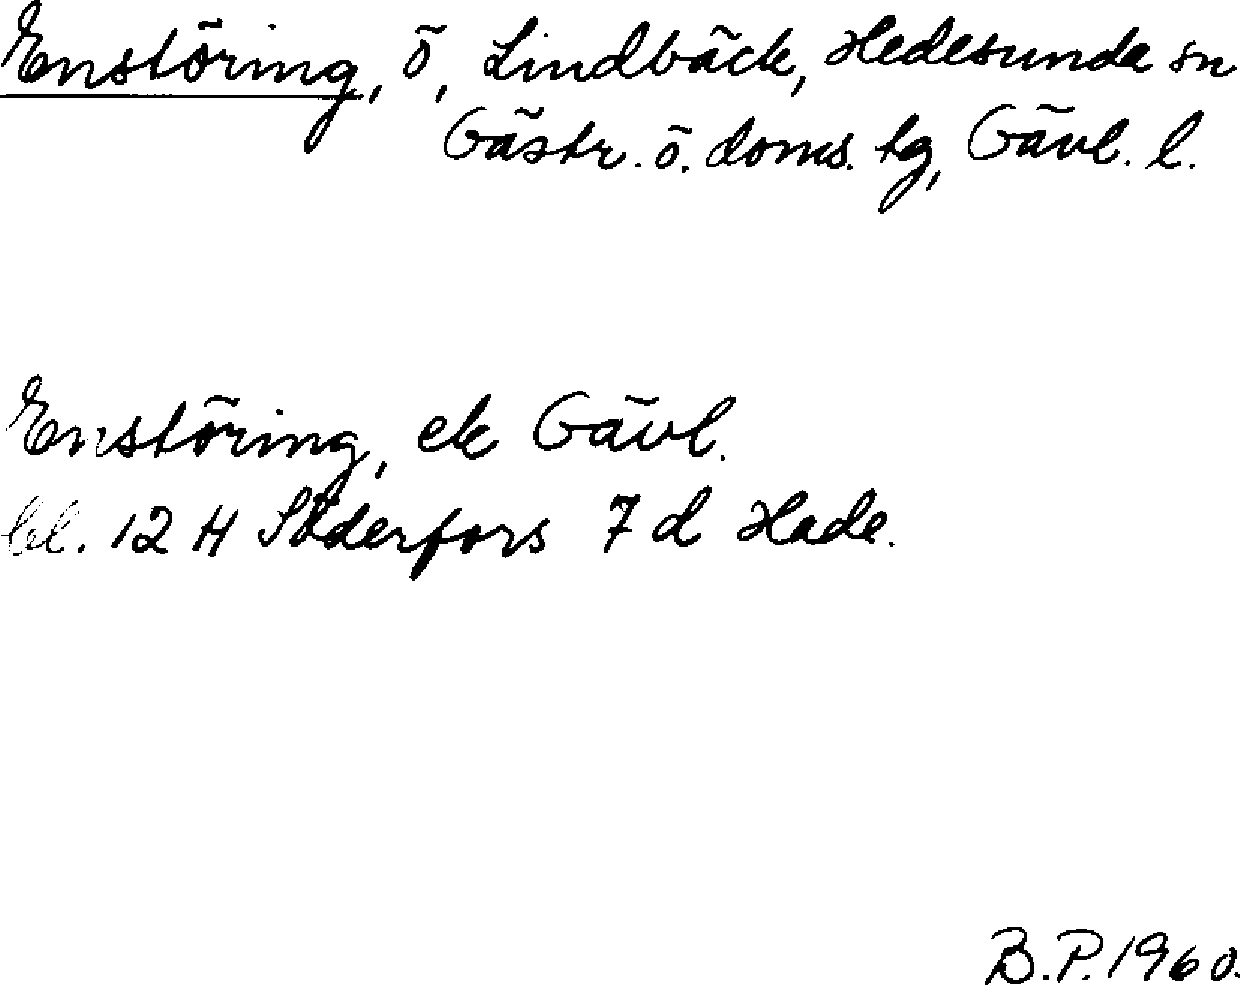 Enstöring, ö, Lindbäck, Hedesunda sn
Gästr. ö. doms. tg, Gävl. l.
Enstöring, ek Gävl.
bl. 12 H Söderfors 7 d Hade.
B.P. 1960.